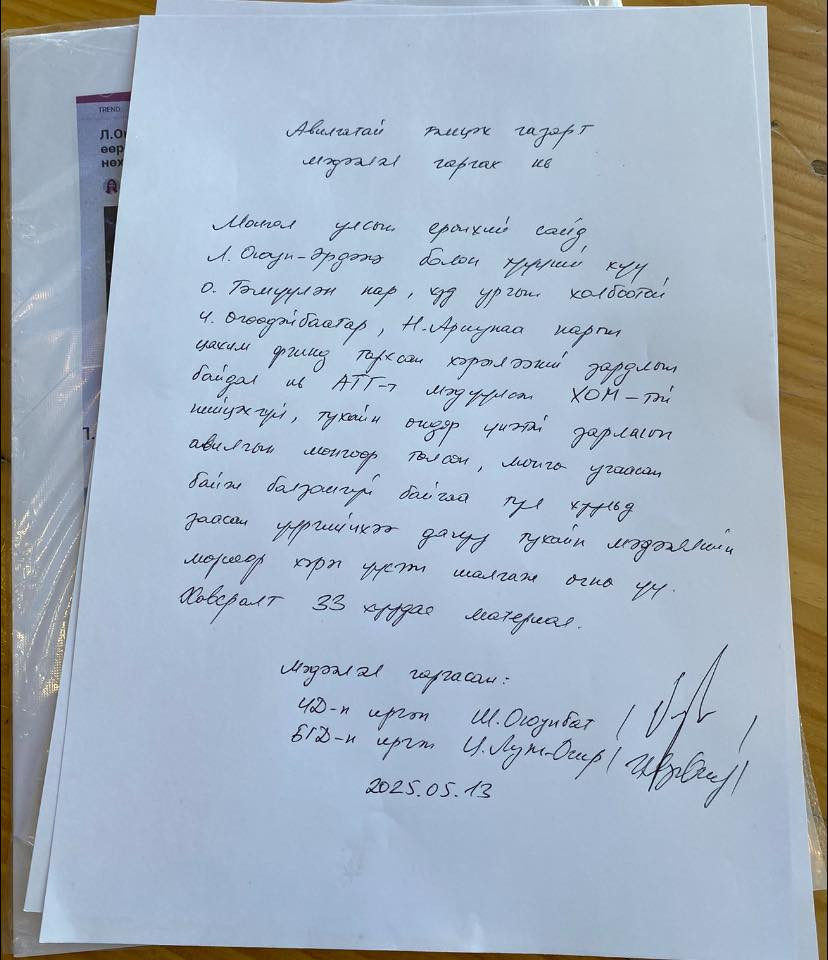 TREND
Л.Ою
өөр
нөх
Авилгатай тэмцэх газарт
мэдээлэл гаргах нь
Монгол улсын ерөнхий сайд
Л. Оюун-Эрдэнэ болон түүний хүү
О. Тэмүүлэн нар, худ ургын холбоотой
Ч. Өгөөдэйбаатар, Н. Ариунаа нарын
цахим орчинд тархсан хэрэглээний зардлын
байдал нь АТГ-т мэдүүлсэн ХОМ-тэй
нийцэхгүй, тухайн өндөр үнэтэй зарлагын
авилгын мөнгөөр төлсөн, мөнгө угаасан
байж болзошгүй байгаа тул хуульд
заасан үүргийнхээ дагуу тухайн мэдээллийн
мөрөөр хэрэг үүсгэж шалгаж өгнө үү.
Хавсралт 33 хуудас материал.
Мэдээлэл гаргасан:
ЧД-н иргэн Ш. Оюунбат / /
БГД-н иргэн Ц. Лут-Очир / /
2025.05.13